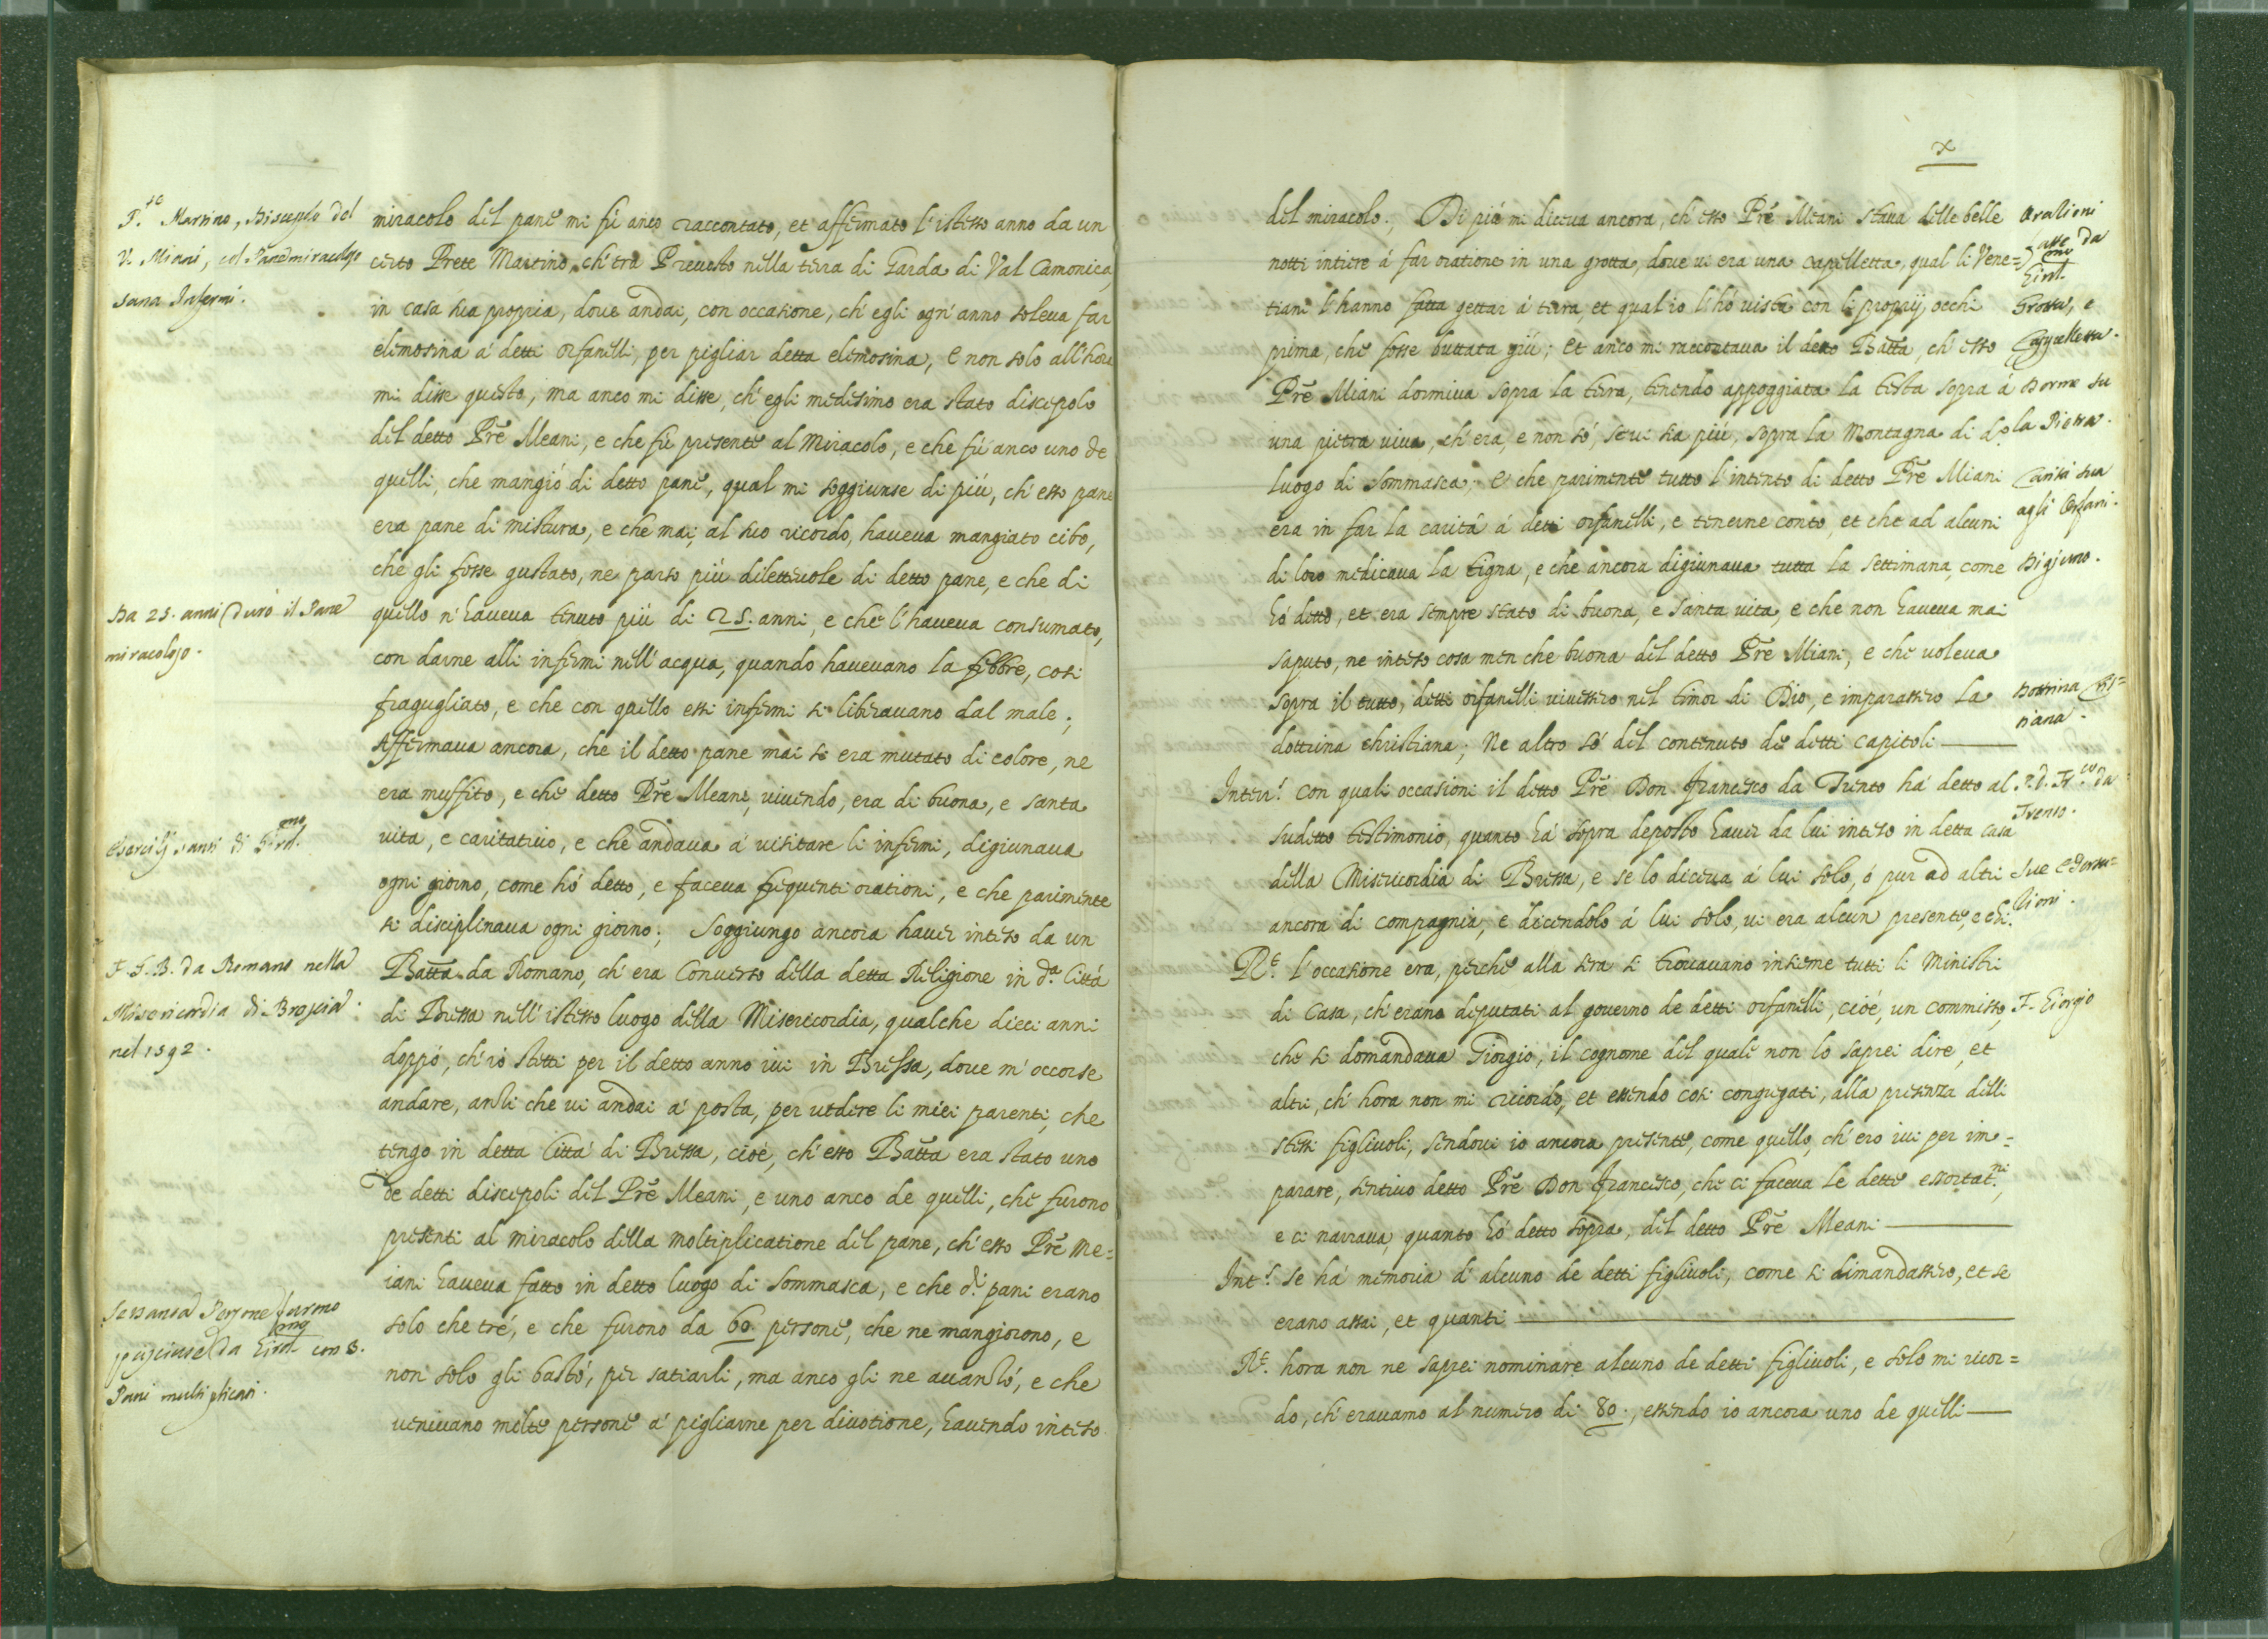 P.te Martino, Discepolo del
V. Miani, col Pane miracoloso
sana Infermi.
miracolo del pane mi fù anco raccontato, et affermato l'istesso anno da un
certo Prete Martino, ch'era Prevosto nella terra di Garda di Val Camonica,
in casa sua propria, dove andai, con occasione, ch'egli ogn'anno soleva far
elemosina à detti orfanelli, per pigliar detta elemosina, e non solo all'hora
mi disse questo, ma anco mi disse, ch'egli medesimo era stato discepolo
del detto Prē Meani, e che fù presente al Miracolo, e che fù anco uno de
quelli, che mangiò di detto pane, qual mi soggiunse di più, ch'esso pane
era pane di mistura, e che mai, al suo ricordo, haveva mangiato cibo,
che gli fosse gustato, ne parso più dilettevole di detto pane, e che di
Da 25. anni durò il Pane
miracoloso.
quello n'haveva tenuto più di 25. anni, e che l'haveva consumato,
con darne alli infermi nell'acqua, quando havevano la febbre, cosi
fragugliato, e che con quello essi infermi si liberavano dal male;
Affermava ancora, che il detto pane mai si era mutato di colore, ne
era muffito, e che detto Prē Meani, vivendo, era di buona, e santa
Esercitij santi di Girol.mo
vita, e caritativo, e che andava à visitare li infermi, digiunava
ogni giorno, come hò detto, e faceva frequenti orationi, e che parimente
si disciplinava ogni giorno; Soggiungo ancora haver inteso da un
F. G. B. da Romano nella
Misericordia di Brescia
nel 1592.
Batta da Romano, ch'era Converso della detta Religione in d.a Città
di Bressa nell'istesso luogo della Misericordia, qualche dieci anni
doppò, ch'io stetti per il detto anno ivi in Bressa, dove m'occorse
andare, anzi che vi andai à posta, per vedere li miei parenti, che
tengo in detta Città di Bressa, cioè, ch'esso Batta era stato uno
de detti discepoli del Prē Meani, e uno anco de quelli, che furono
presenti al miracolo della moltiplicatione del pane, ch'esso Prē Me=
iani haveva fatto in detto luogo di Sommasca, e che d.i pani erano
Sessanta Persone furono
pasciute da Girol.mo con 3.
Pani multiplicati.
solo che tré, e che furono da 60. persone, che ne mangiorono, e
non solo gli bastò, per satiarli, ma anco gli ne avanzò, e che
venivano molte persone à pigliarne per divotione, havendo inteso
X
del miracolo; Di più mi diceva ancora, ch'esso Prē Miani stava delle belle
notti intiere à far oratione in una grotta, dove vi era una capelletta, qual li Vene=
tiani l'hanno fatta gettar à terra, et qual io l'hò vista con li proprij occhi
prima, che fosse buttata giù; Et anco mi raccontava il detto Batta, ch'esso
Prē Miani dormiva sopra la terra, tenendo appoggiata la testa sopra à
una pietra viva, ch'era, e non sò, se vi sia più, sopra la Montagna di d.o
luogo di Sommasca; E che parimente tutto l'intento di detto Prē Miani
era in far la carità à detti orfanelli, e tenerne conto, et che ad alcuni
di loro medicava la tigna, e che ancora digiunava tutta la settimana, come
hò detto, et era sempre stato di buona, e santa vita, e che non haveva mai
saputo, ne inteso cosa men che buona del detto Prē Miani, e che voleva
sopra il tutto, detti orfanelli vivessero nel timor di Dio, e imparassero la
dottrina christiana; Ne altro sò del contenuto de detti capitoli
Orationi
fatte da
Girol.mo
Grotta, e
Cappelletta.
Dorme su
la Pietra.
Carità sua
agli Orfani.
Digiuno.
Dottrina Xti=
niana.
Interr.t Con quali occasioni il detto Prē Don Francesco da Trento hà detto al
sudetto testimonio, quanto hà sopra deposto haver da lui inteso in detta casa
della Misericordia di Bressa, e se lo diceva à lui solo, ò pur ad altri
ancora di compagnia, e dicendolo à lui solo, vi era alcun presente, e chi.
P. d. Fr.co da
Trento.
Sue Esorta=
tioni.
R.t l'occasione era, perche alla sera si trovavano insieme tutti li Ministri
di Casa, ch'erano deputati al governo de detti orfanelli, cioè, un commisso,
che si domandava Giorgio, il cognome del quale non lo saprei dire, et
altri, ch'hora non mi ricordo, et essendo cosi congregati, alla presenza delli
stessi figliuoli, sendovi io ancora presente, come quello, ch'ero ivi per im=
parare, sentivo detto Prē Don Francesco, che ci faceva le dette essortat.ni,
e ci narrava, quanto hò detto sopra, del detto Prē Meani
F. Giorgio
Int.t Se hà memoria d'alcuno de detti figliuoli, come si dimandassero, et se
erano assai, et quanti
R.t hora non ne saprei nominare alcuno de detti figliuoli, e solo mi ricor=
do, ch'eravamo al numero di 80., essendo io ancora uno de quelli